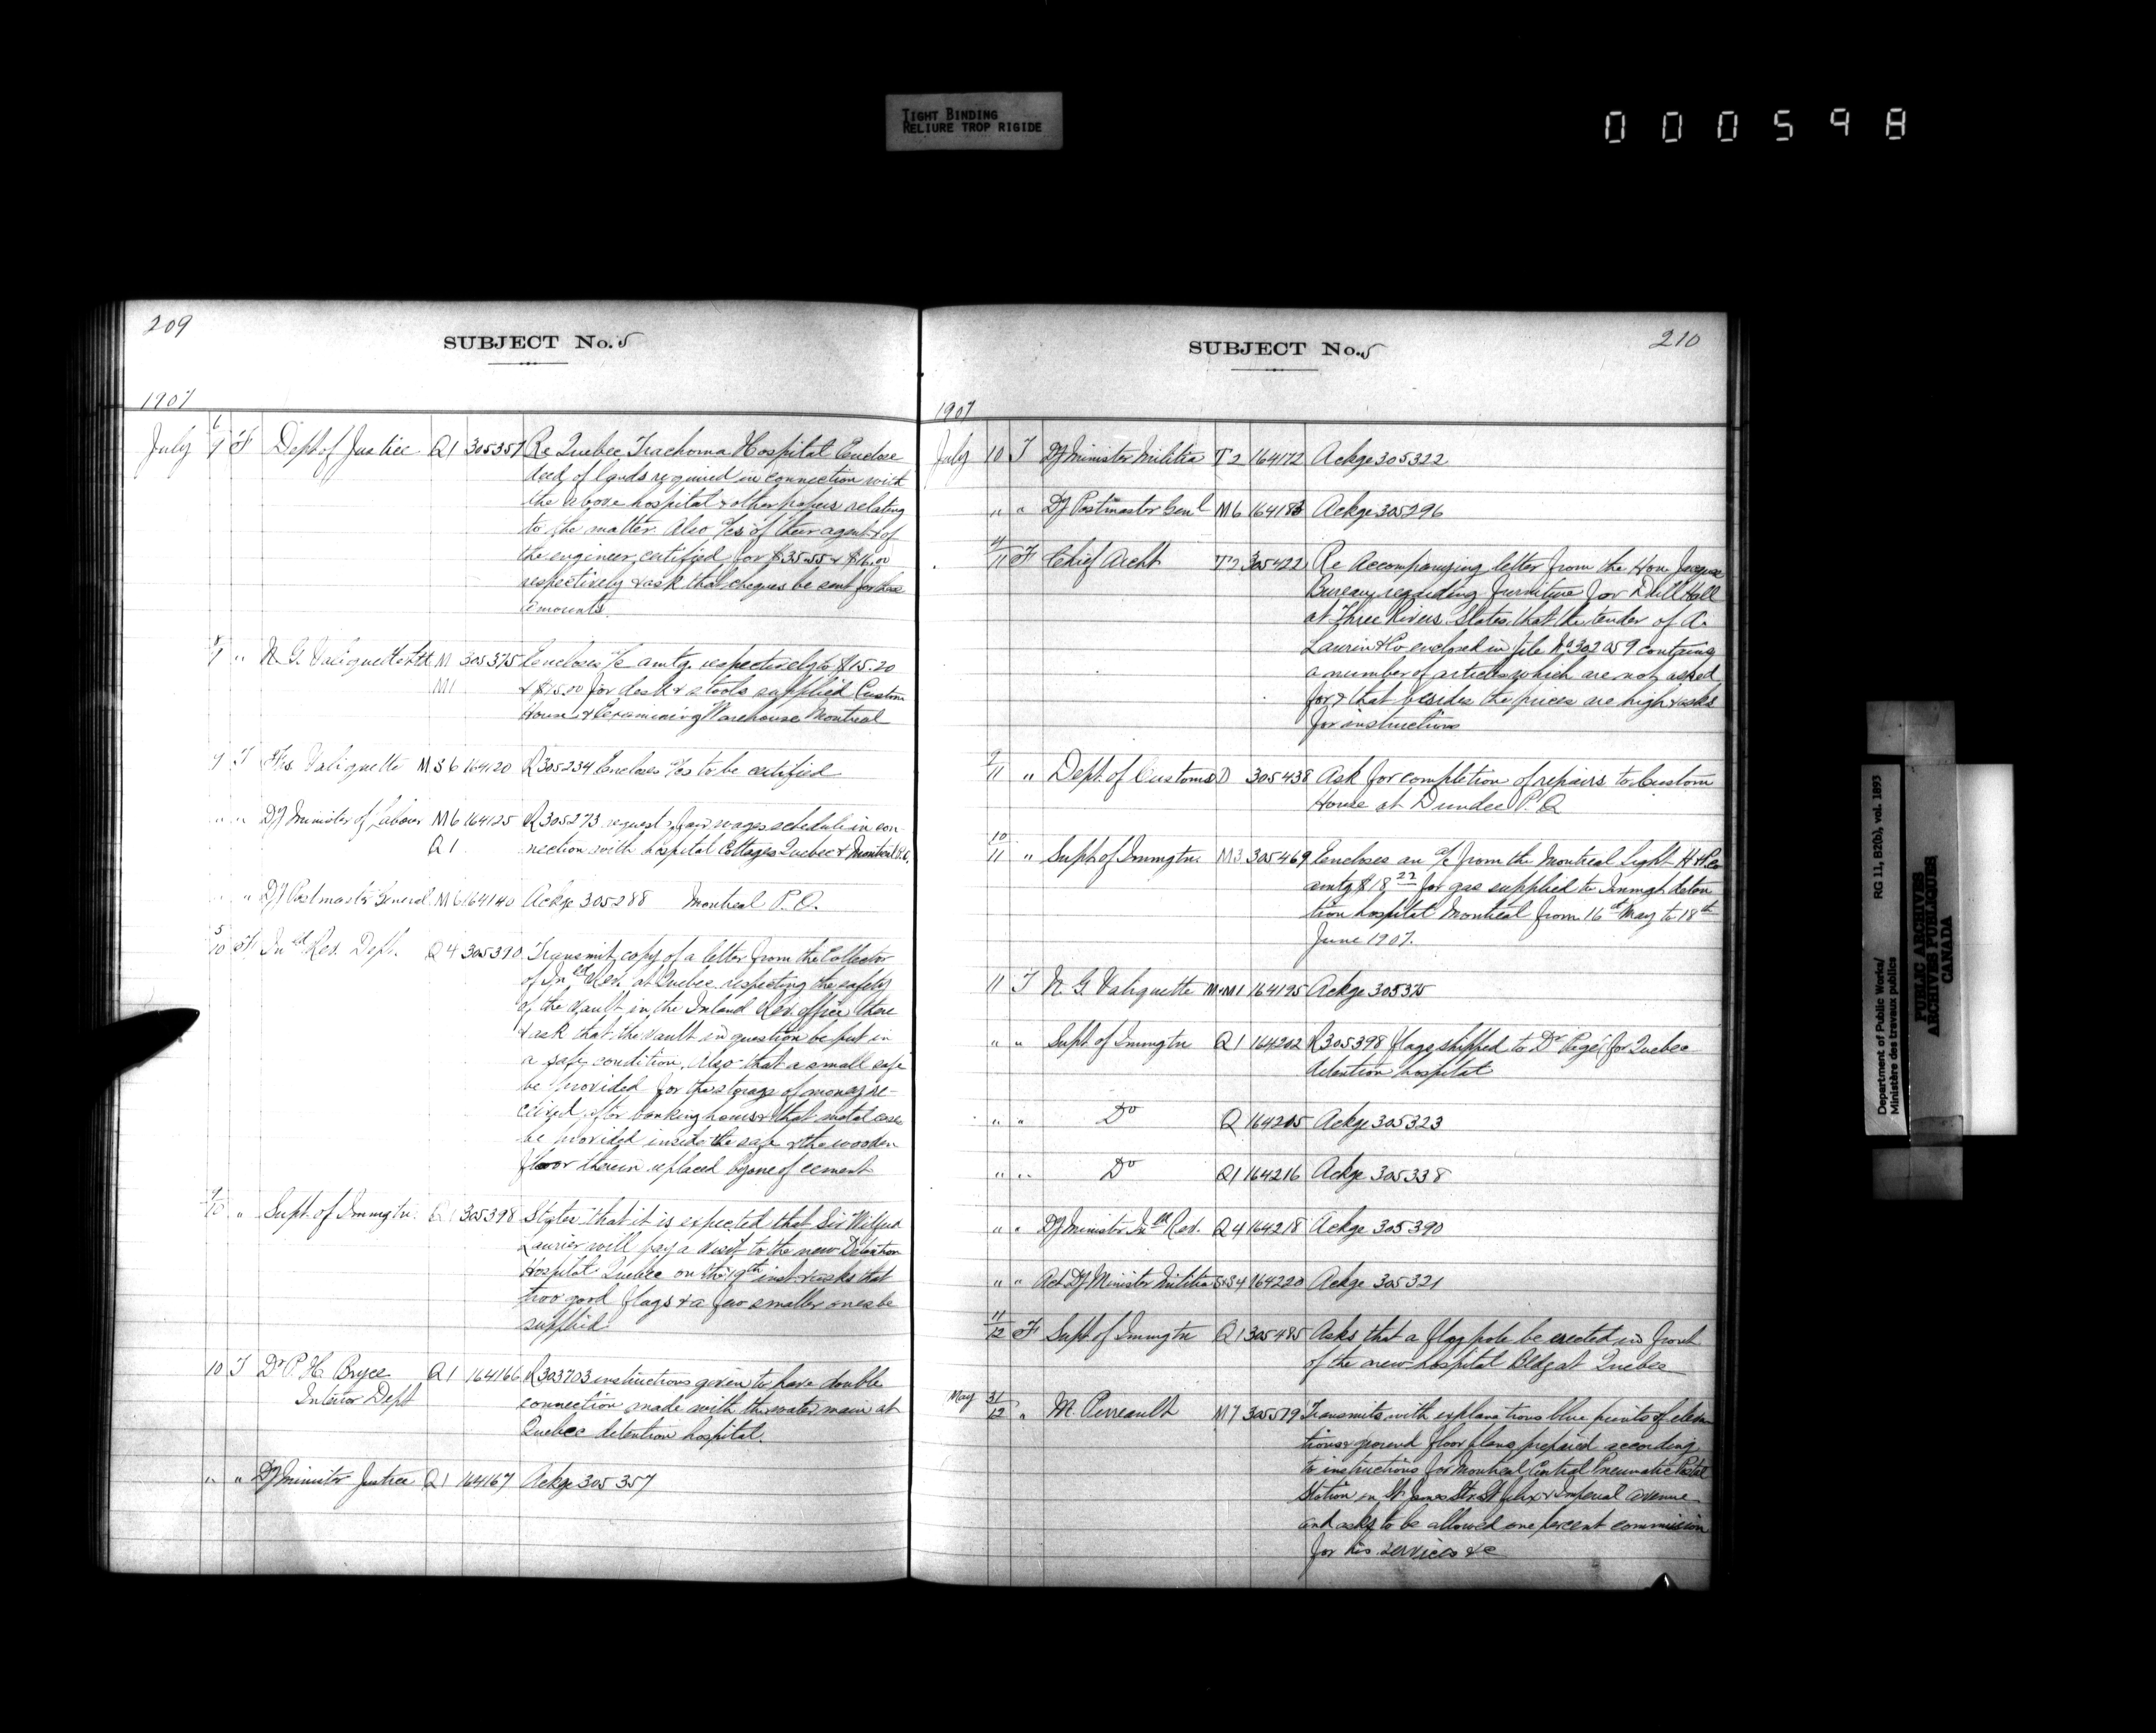 TIGHT BINDING
RELIURE TROP RIGIDE
000598
209
SUBJECT No. 5
1907
July 6/7 F Dept of Justice Q1 305357 Re Quebec Trachoma Hospital Enclose
deed of lands required in connection with
the above hospital & other papers relating
to the matter. Also a/cs of their agent & of
the engineer, certified for $35.55 & $16.00
respectively & ask that cheques be sent for these
amounts.
" N. G. Valiquette Ltd M 305375 Encloses a/c amtg. respectively to $15.20
M1 & $25.00 for desk & stools supplied Custom
House & Examining Warehouse Montreal
T Valiquette M S 6 164120 R 305234 Encloses a/cs to be certified
" " Dy Minister of Labour M6 164125 R 305273 request fair wages schedule in con-
Q1 nection with hospital Cottages Quebec & Montreal
" " Dy Postmaster General M6 164140 Ackge 305288 Montreal P.O.
5/10 F Inld Rev. Dept. Q4 305390 Transmit copy of a letter from the Collector
of Inld Rev. at Quebec respecting the safety
of the Vault in the Inland Rev. office there
& ask that the Vault in question be put in
a safe condition. Also that a small safe
be provided for the storage of money re-
ceived after banking hours & that metal case
be provided inside the safe & the wooden
floor therein replaced by one of cement
9/10 " Supt. of Immigtn. Q1 305398 States that it is expected that Sir Wilfrid
Laurier will pay a visit to the new Detention
Hospital Quebec on the 19th inst & asks that
two good flags & a few smaller ones be
supplied.
10 T Dr P. H. Bryce Q1 164166 R 303703 instructions given to have double
Interior Dept connection made with the water main at
Quebec detention hospital.
" " Dy Minister Justice Q1 164167 Ackge 305357
210
SUBJECT No. 5
1907
July 10 T Dy Minister Militia T2 164172 Ackge 305322
" " Dy Postmaster Genl M6 164183 Ackge 305296
11 F Chief Archt T2 305422 Re Accompanying letter from the Hon. Jacques
Bureau regarding furniture for Drill Hall
at Three Rivers. States that the tender of A.
Laurin & Co enclosed in file No 302059 contains
a number of articles which are not asked
for & that besides the prices are high & asks
for instructions
9/11 " Dept. of Customs D 305438 Ask for completion of repairs to Custom
House at Dundee P.Q
10/11 " Supt. of Immigtn. M3 305469 Encloses an a/c from the Montreal Light H & P Co
amtg $18.22 for gas supplied to Immigt deten
tion hospital Montreal from 16th May to 18th
June 1907.
11 T N. G. Valiquette M&M1 164195 Ackge 305375
" " Supt. of Immigtn Q1 164202 R 305398 flags shipped to Dr Pagé for Quebec
detention hospital
" " Do Q 164205 Ackge 305323
" " Do Q1 164216 Ackge 305338
" " Dy Minister Inld Rev. Q4 164218 Ackge 305390
" " Act Dy Minister Militia S&S4 164220 Ackge 305321
11/12 F Supt. of Immigtn Q1 305485 Asks that a flag pole be erected in front
of the new hospital Bldg at Quebec
May 31/12 " M. Perreault M7 305579 Transmits with explanations blue prints of eleva
tions & ground floor plans prepared according
to instructions for Montreal Central Pneumatic Postal
Station on St James Str. St Felix & Imperial avenue
and asks to be allowed one percent commission
for his services &c
Department of Public Works/ RG 11, B2(b), vol. 1893
Ministère des travaux publics
PUBLIC ARCHIVES
ARCHIVES PUBLIQUES
CANADA